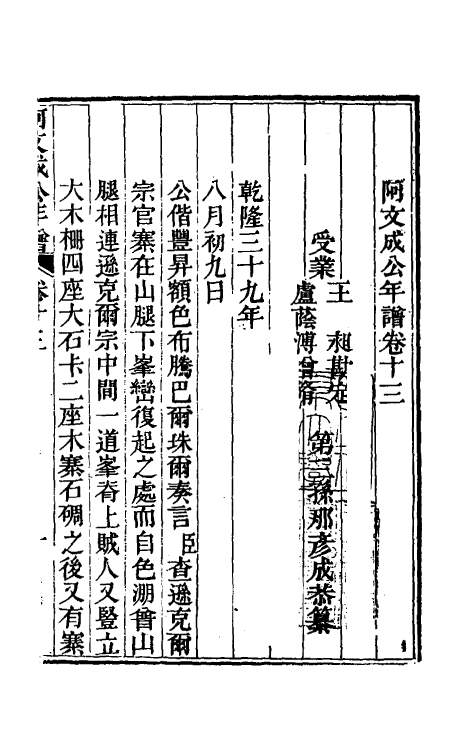 阿文成公年譜卷十三
受業 王 昶勘定
盧蔭溥曾箚 第三孫那彥成恭纂
乾隆三十九年
八月初九日
公偕豐昇額色布騰巴爾珠爾奏言臣查遜克爾
宗官寨在山腿下峯巒復起之處而自色淜曾山
腿相連遜克爾宗中間一道峯脊上賊人又豎立
大木柵四座大石卡二座木寨石碉之後又有寨
阿文成公年譜 卷十三 一